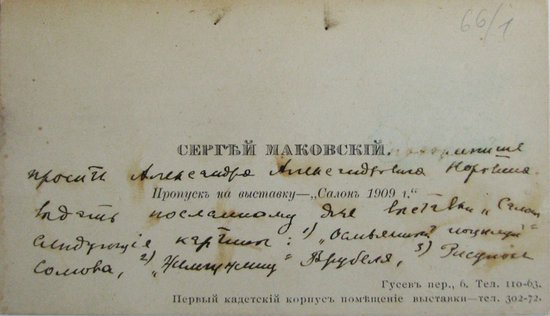 66/1
СЕРГѢЙ МАКОВСКІЙ.
проситъ Александра Александровича Коровина
Пропускъ на выставку—„Салонъ 1909 г.“
выдать посланному для выставки „Салонъ
слѣдующія картины: 1) „Осмѣянный поцѣлуй“
Сомова, 2) „Жемчужину“ Врубеля, 3) Рисунки
Гусевъ пер., 6. Тел. 110-63.
Первый кадетскій корпусъ помѣщеніе выставки—тел. 302-72.